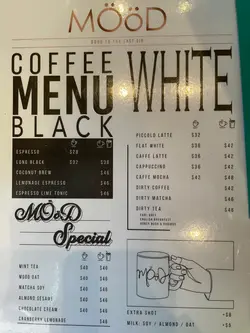 MÖöD
GOOD TO THE LAST SIP
COFFEE
MENU
BLACK
WHITE
ESPRESSO $28
LONG BLACK $32 $38
COCONUT BREW $48
LEMONADE ESPRESSO $48
ESPRESSO LIME TONIC $48
PICCOLO LATTE $32
FLAT WHITE $38 $42
CAFFE LATTE $38 $42
CAPPUCCINO $38 $42
CAFFE MOCHA $38 $42
DIRTY COFFEE $48
DIRTY MATCHA $48
DIRTY TEA $48
EARL GREY
ENGLISH BREAKFAST
MÖöD
Special
MINT TEA $48
MOOD OAT $48 $48
MATCHA SOY $48 $48
ALMOND SESAMI $48 $48
CHOCOLATE CREAM $48 $48
CRANBERRY LEMONADE $48
mööd
EXTRA SHOT +$8
MILK: SOY / ALMOND / OAT +$8